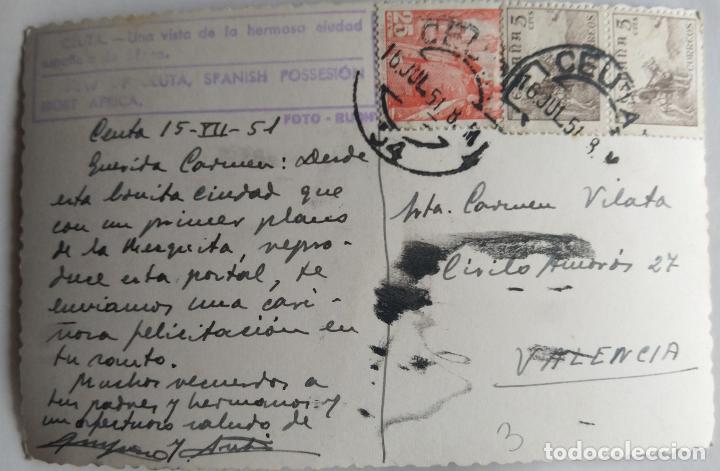 CEUTA.—Una vista de la hermosa ciudad
española de
CEUTA, SPANISH POSSESIÓN
AFRICA.
FOTO - RUBI
25
CEUTA
16 JUL 51
ESPAÑA 5 CTS
CORREOS
Ceuta 15-VII-51
Querida Carmen: Desde
esta bonita ciudad que
con un primer plano
de la Mezquita, repro-
duce esta postal, te
enviamos una cari-
ñosa felicitación en
tu santo.
Muchos recuerdos a
tus padres y hermanos y
un afectuoso saludo de
Srta. Carmen Vilata
Cirilo Amorós 27
VALENCIA
3
todocoleccion